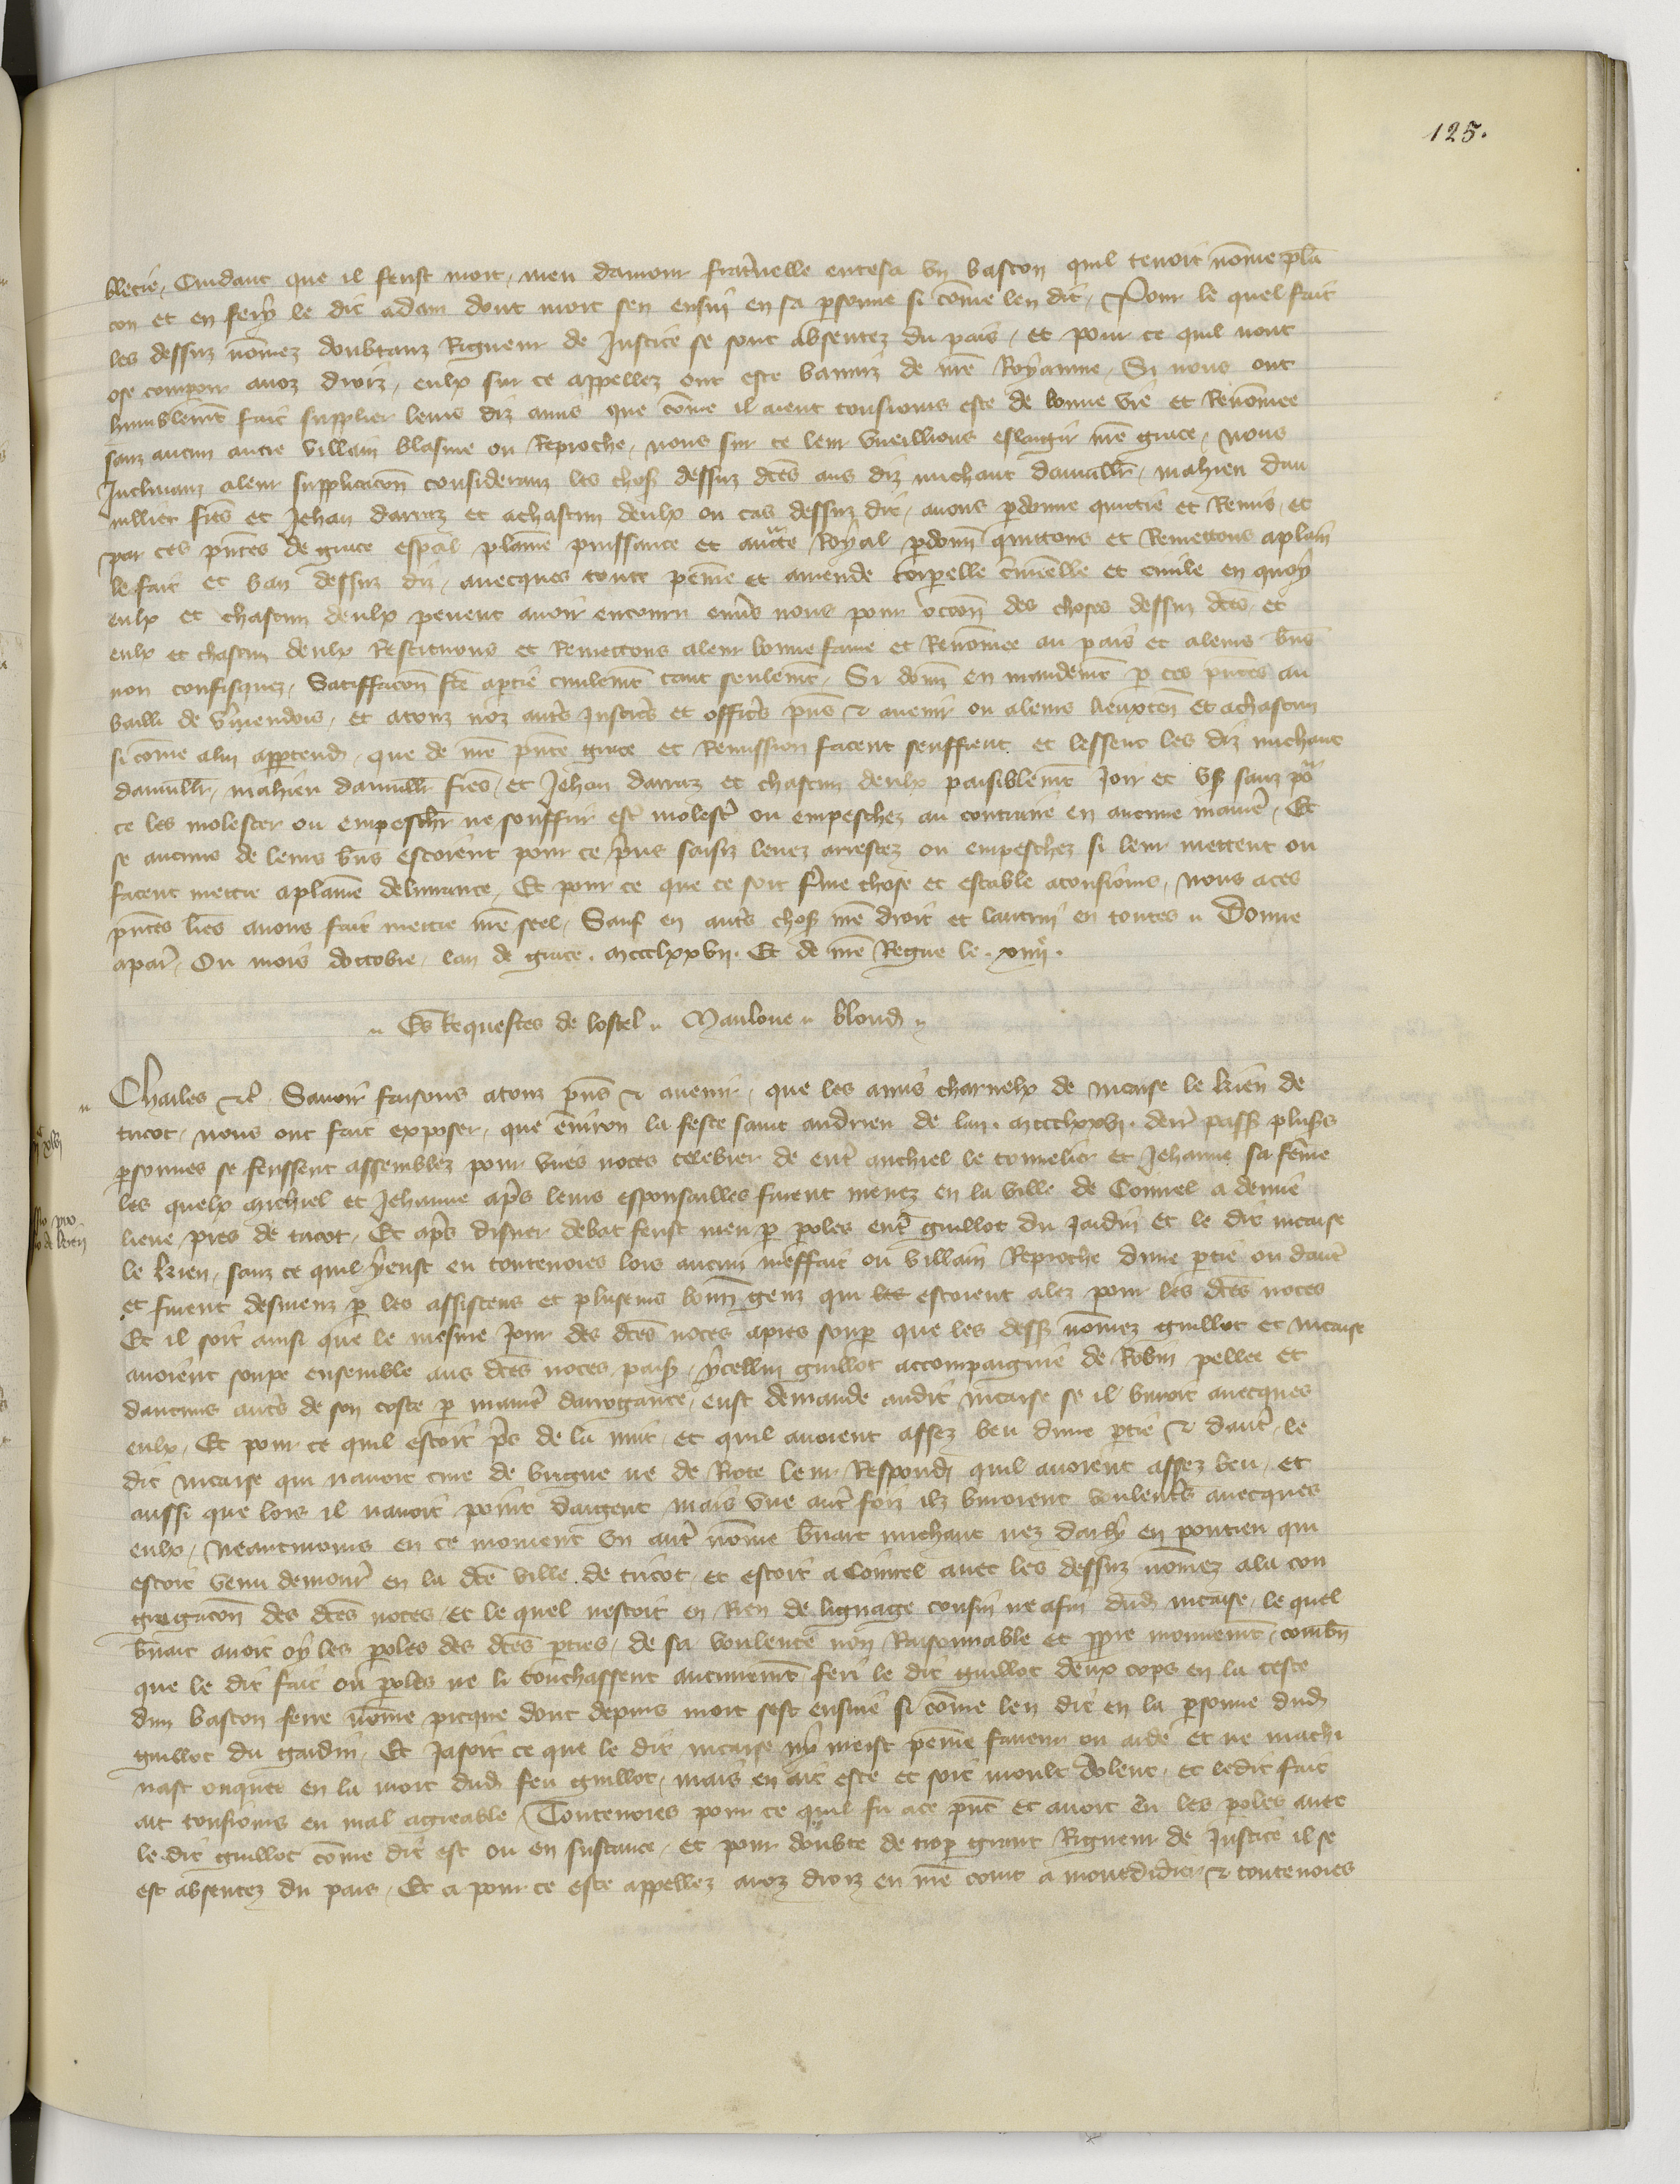 125.
blecie, Cuidant que il feust mort, meu damour frat'nelle entesa un baston quil tenoit nōme plā
con et en fery le dit adam dont mort sen ensui en sa psonne si cōme len dit, Pour le quel fait
les dessuz nōmez doubtanz Rigueur de Justice se sont absentez du pais, et pour ce quil nont
ose compoir a noz droiz, eulx sur ce appellez ont este banniz de nr̄e Royaume, Si nous ont
humblemt̄ fait supplier leurs diz amis que cōme il aient tousiours este de bonne vie et Renōmee
sanz aucun autre villain blasme ou Reproche, nous sur ce leur vueillions eslargir nr̄e grace, Nous
Inclinanz aleur supplicacōn consideranz les chos dessuz dc̄es aus diz michaut damill'r, mahieu dau
millier fr̄es et Jehan darraz et achascun deulx ou cas dessuz dit, avons pdonne quictie et Remis, et
par ces pn̄tes de grace esp̄al plaine puissance et auc̄te Royal pdonn̄ quittons et Remettons aplain
le fait et ban dessuz diz, avecques toute peine et amende corpelle c'minelle et civile en quoy
eulx et chascun deulx pevent avoir encouru env's nous pour occōn des choses dessuz dc̄es, et
eulx et chascun deulx Restituons et Remettons aleur bonne fame et Renōmee au pais et aleurs biēs
non confisquez, Satiffacōn fc̄e aptie civilemt̄ tant seulemt̄, Si donn̄ en mandemt̄ p ces pn̄tes au
bailli de v'mendois, et atouz noz aut's Justic's et offic's pn̄s & avenir ou aleurs lieuxten̄ et achascun
si cōme alui appartend, que de nr̄e pn̄te grace et Remission facent seuffrent et lessent les diz michaut
damill'r, mahieu damill'r fr̄es, et Jehan darraz et chascun deulx paisiblemt̄ Joir et us sanz
ce les molester ou empesch'r ne souffrir est' molest' ou empeschez au contraire en aucune manie', Et
se aucuns de leurs biēs estoient pour ce pris saisiz levez arrestez ou empeschez si leur mettent ou
facent mettre aplaine delivrance, Et pour ce que ce soit f'me chose et estable atousiours, nous aces
pn̄tes lr̄es avons fait mettre nr̄e seel, Sauf en aut's chos nr̄e droit et lautrui en toutes Donne
apar', Ou mois doctobre, lan de grace. mccclxxvii. Et de nr̄e Regne le. xiiii.
Es Requestes de lostel Maulone blond
Charles &c. Savoir faisons atouz pn̄s & avenir, que les amis charnelx de nicaise le kien de
tricot, nous ont fait exposer, que environ la feste saint andrieu de lan. mccclxxvi. derr' pass plus's
psonnes se feussent assemblez pour unes noces celebrer de ent' michiel le tonnelier et Jehanne sa fēme
les quelx michiel et Jehanne ap's leurs espousailles furent menez en la ville de Coinrel a demie
lieue pres de tricot, Et ap's disner debat feust meu p poles ent' guillot du Jardin et le dit nicaise
le kien, sanz ce quil y eust en toutevoies lors aucun meffait ou villain Reproche dune ptie ou daut'
et furent desmeuz p les assistens et pluseurs bonn̄ genz qui les estoient alez pour les dc̄es noces
Et il soit ainsi que le mesme Jour des dc̄es noces apres soup que les dess nōmez guillot et nicaise
avoient soupe ensemble aus dc̄es noces, ycellui guillot accompaignie de Robin pellee et
daucuns aut's de son coste p manie' darrogance, eust demande audit nicaise se il buvoit avecques
eulx, Et pour ce quil estoit p's de la nuit, et quil avoient assez beu dune ptie & daut', le
dit nicaise qui navoit cure de brigue ne de Riote leur Respondi quil avoient assez beu, et
aussi que lors il navoit point dargent mais une aut' foiz ilz buvroient voulent's avecques
eulx, Neantmoins en ce moment un aut' nōme b'nart michaut nez dailly en pontieu qui
estoit venu demour' en la dc̄e ville de tricot, et estoit a Coinrel avec les dessuz nōmez ala con
gregacōn des dc̄es noces, et le quel nestoit en Rien de lignage cousin ne afin dud nicaise, le quel
b'nart avoit oy les poles des dc̄es pties, de sa voulente non Raisonnable et ppre mouvemt̄, combn̄
que le dit fait ou poles ne li touchassent aucunemt̄ feri le dit guillot deux cops en la teste
dun baston ferre nōme picque dont depuis mort sest ensuie si cōme len dit en la psonne dud
guillot du gardin, Et Jasoit ce que le dit nicaise ny meist peine faveur ou aide et ne machi
nast onques en la mort dud feu guillot, mais en ait este et soit moult dolent, et ledit fait
ait tousiours eu mal agreable, Toutevoies pour ce quil fu ace pn̄t et avoit eu les poles avec
le dit guillot cōme dit est ou en sustance, et pour doubte de trop grant Rigueur de Justice il se
est absentez du pais, Et a pour ce este appellez a noz droiz en nr̄e court a montdidier & toutevoies